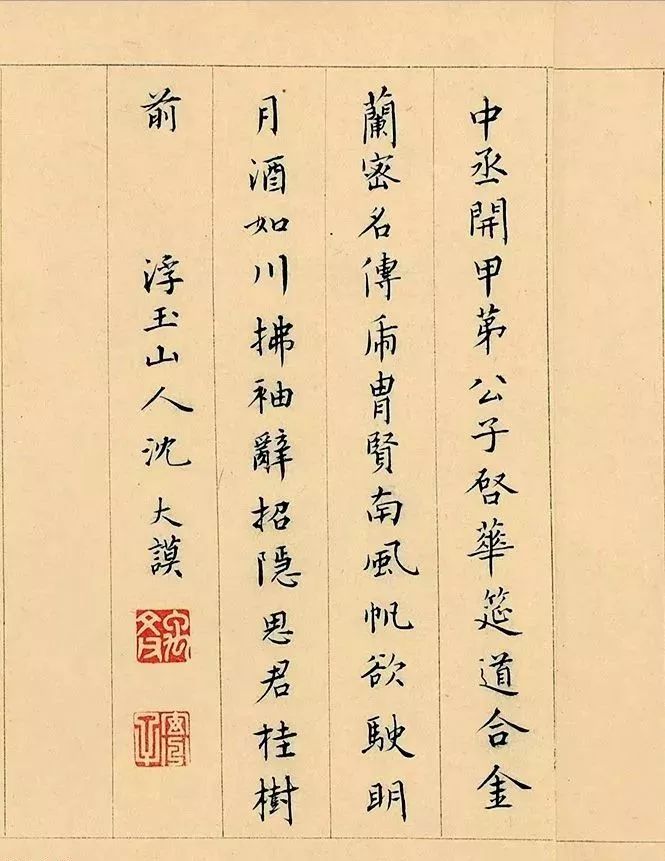 中丞開甲第公子啓華筵道合金
蘭密名傳帝胄賢南風帆欲駛明
月酒如川拂袖辭招隱思君桂樹
前　浮玉山人沈大謨